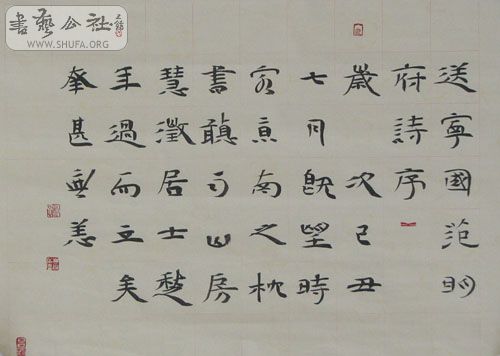 書藝公社
WWW.SHUFA.ORG
送寧國范明
府詩序
歲次己丑
七月既望時
客京南之枕
書山房
慧澂居士
年過而立矣
甚無恙